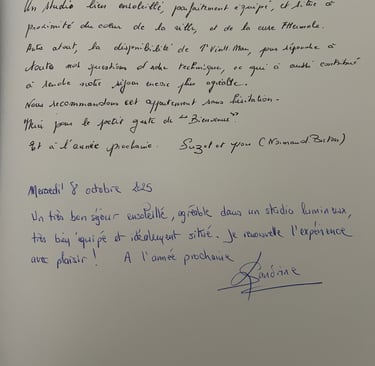 Un studio bien ensoleillé, parfaitement équipé, et situé à
proximité du cœur de la ville, et de la cure Thermale.
Autre atout, la disponibilité de Mr, pour répondre à
toute nos questions d'ordre technique, ce qui a aussi contribué
à rendre notre séjour encore plus agréable.
Nous recommandons cet appartement sans hésitation.
Merci pour le petit geste de "Bienvenue".
Et à l'année prochaine. Suzel et yvon (Normand. Breton)
Mercredi 8 octobre 2025
Un très bon séjour ensoleillé, agréable dans un studio lumineux,
très bien équipé et idéalement situé. Je renouvelle l'expérience
avec plaisir ! A l'année prochaine
Sandrine